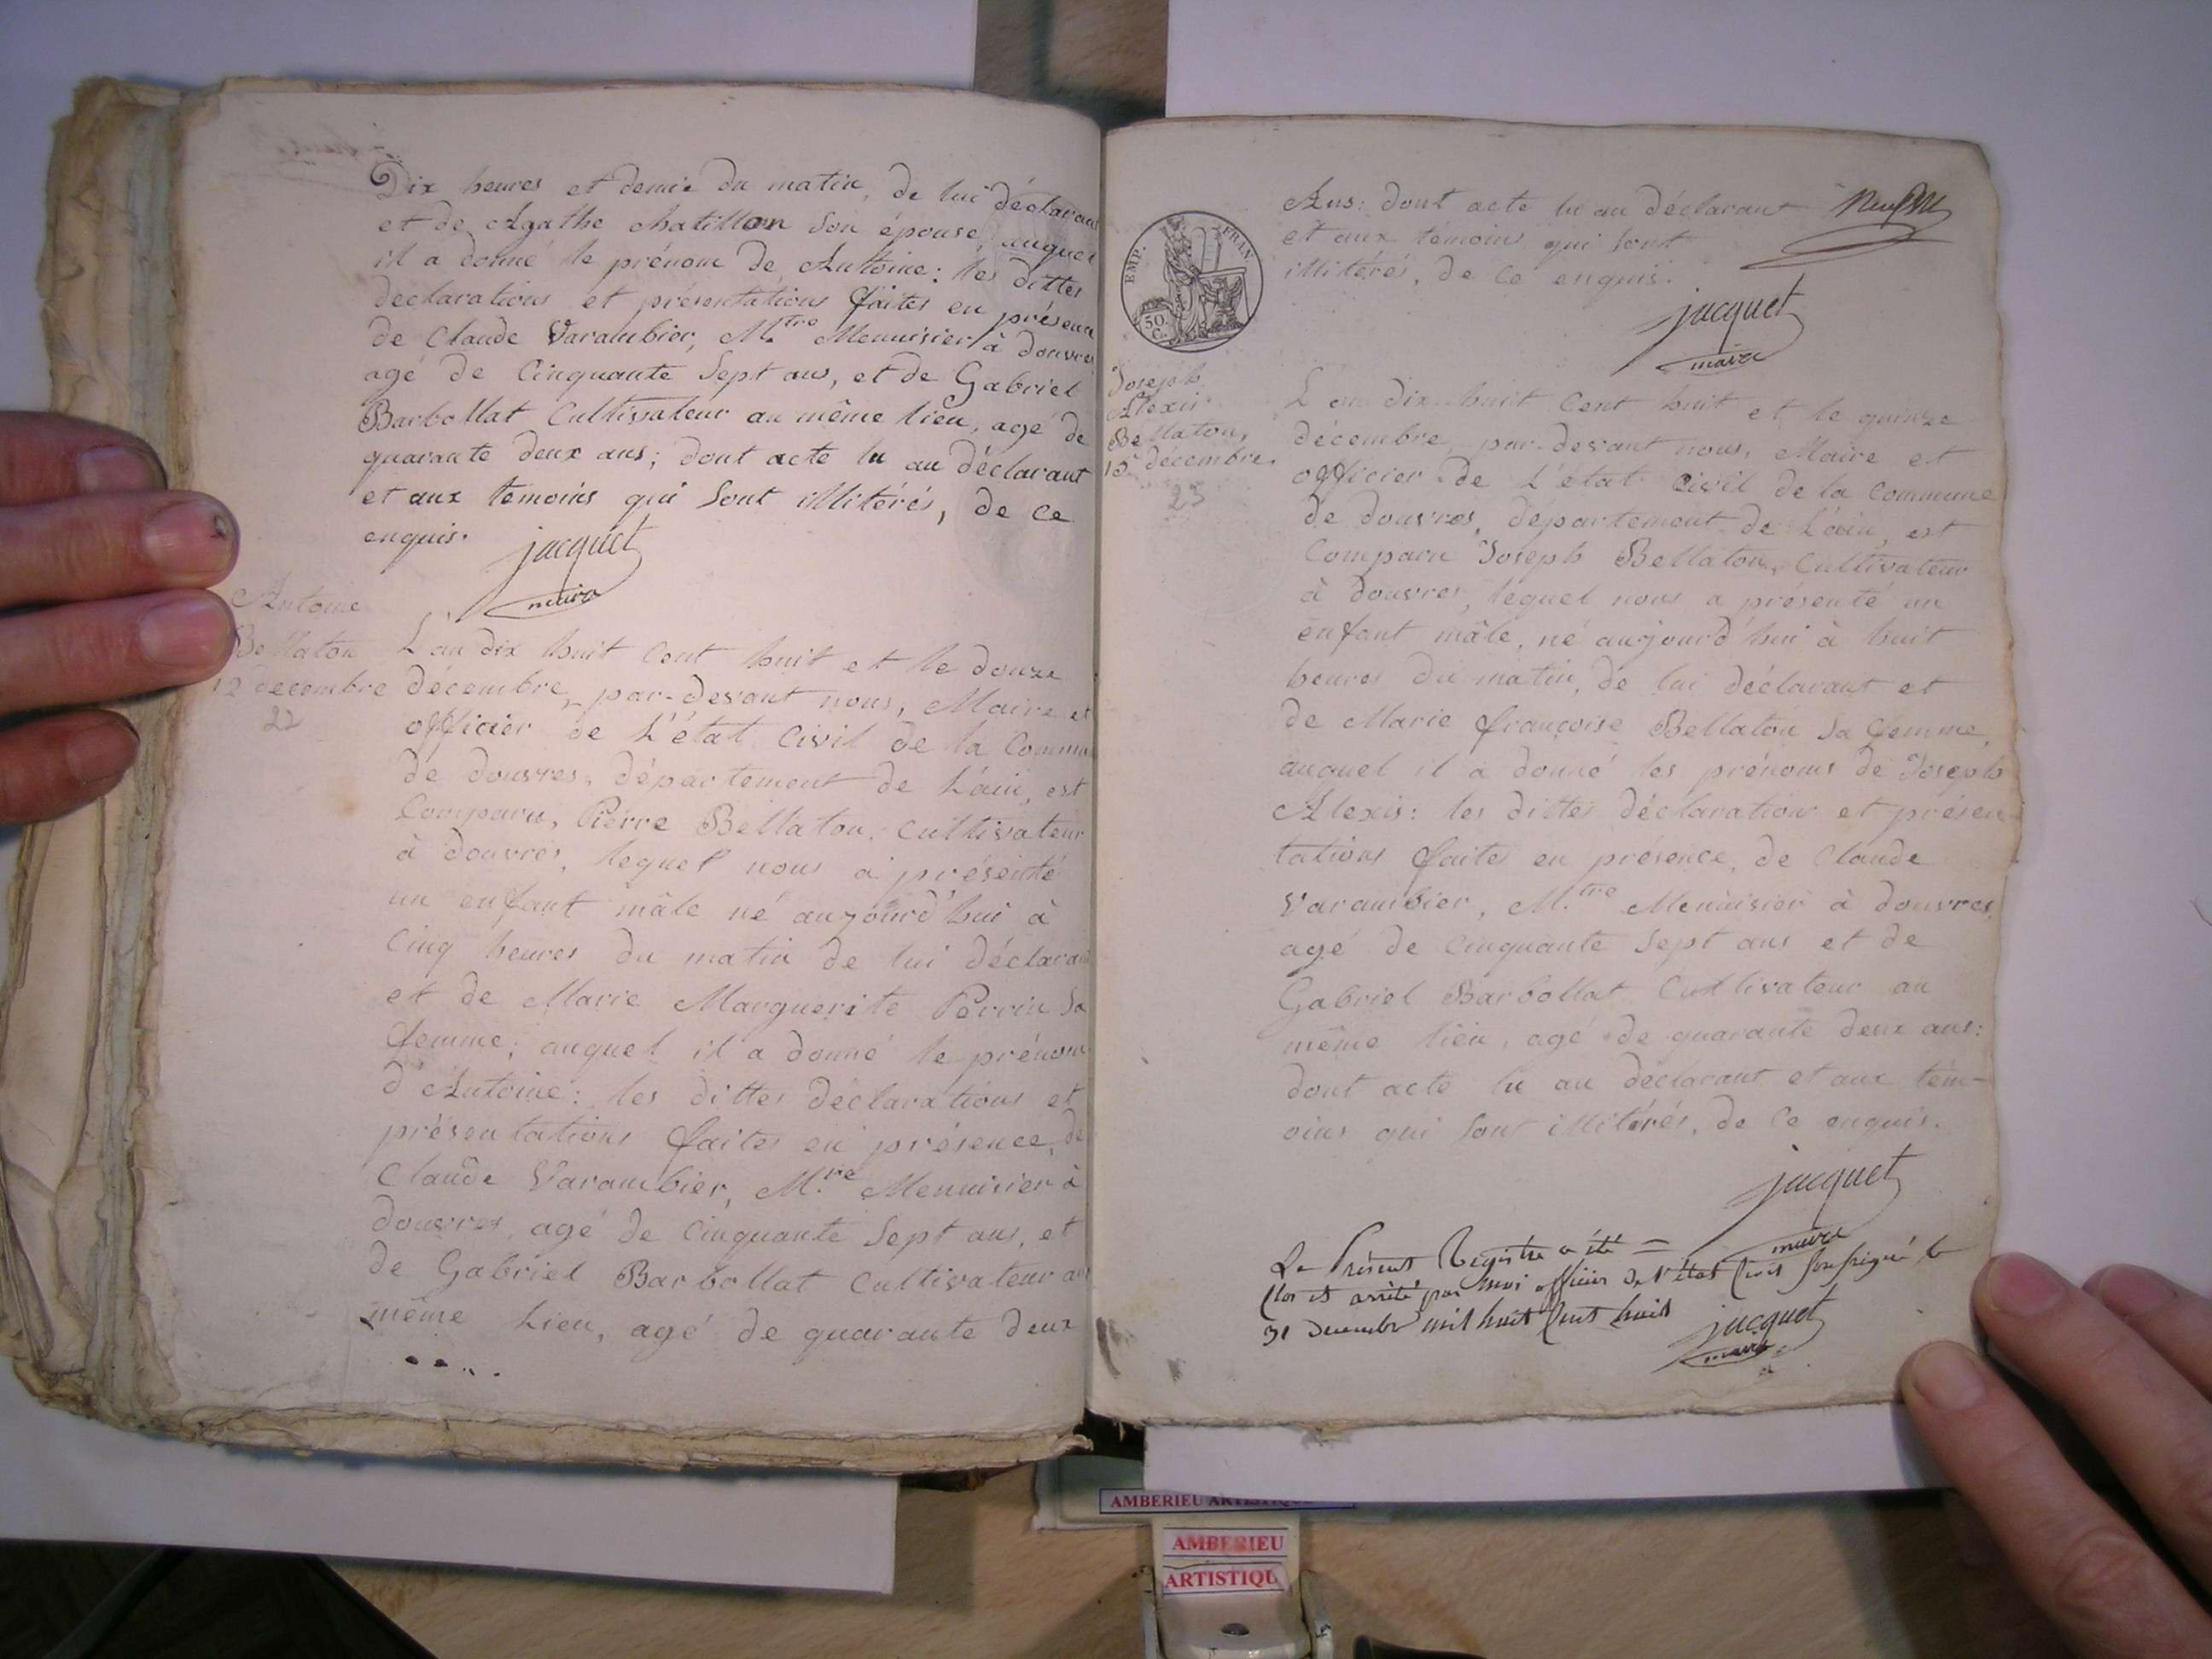 Dix heures et demie du matin, de lui déclarant
et de Agathe chatillon Son épouse, auquel
il a donné le prénom de Antoine: les dittes
déclarations et présentations faites en présence
de Claude Varambier, M.tre Menuisier à douvres
agé de Cinquante Sept ans, et de Gabriel
Barbollat Cultivateur au même lieu, agé de
quarante deux ans; dont acte lu au déclarant
et aux temoins qui Sont illitérés, de ce
enquis.
jacquet
maire
Antoine
Bellaton
12 décembre
22
L'an dix huit Cent huit et le douze
décembre, par-devant nous, Maire et
officier de L'état Civil de la Commu
de douvres, département de L'ain, est
Comparu, Pierre Bellaton, Cultivateur
à douvres, lequel nous a présenté
un enfant mâle né aujourd'hui à
Cinq heures du matin de lui déclarant
et de Marie Marguerite Perrin Sa
femme; auquel il a donné le prénom
d'Antoine: les dittes déclarations et
présentations faites en présence, de
Claude Varambier, M.tre Menuisier à
douvres, agé de Cinquante Sept ans, et
de Gabriel Barbollat Cultivateur au
même Lieu, agé de quarante deux
EMP. FRAN.
50.
C.
Ans: dont acte lu au déclarant
et aux témoins qui Sont
illitérés, de ce enquis.
jacquet
maire
Joseph
Alexis
Bellaton,
15 décembre.
23
L'an dix-huit Cent huit et le quinze
décembre, par-devant nous, Maire et
officier de L'état Civil de la Commune
de douvres, département de L'ain, est
Comparu Joseph Bellaton, Cultivateur
à douvres, lequel nous a présenté un
enfant mâle, né aujourd'hui à huit
heures du matin, de lui déclarant et
de Marie françoise Bellaton Sa femme,
auquel il a donné les prénoms de Joseph
Alexis: les dittes déclaration et présen
tations faites en présence, de Claude
Varambier, M.tre Menuisier à douvres,
agé de Cinquante Sept ans et de
Gabriel Barbollat Cultivateur au
même lieu, agé de quarante deux ans:
dont acte lu au déclarant et aux tém-
oins qui Sont illitérés, de Ce enquis.
jacquet
maire
Le Présent Registre a été =
Clos et arrêté par moi officier de l'état Civil soussigné le
31 Decembre mil huit Cent huit
jacquet
maire
AMBERIEU ARTISTIQUE
AMBERIEU
ARTISTIQU